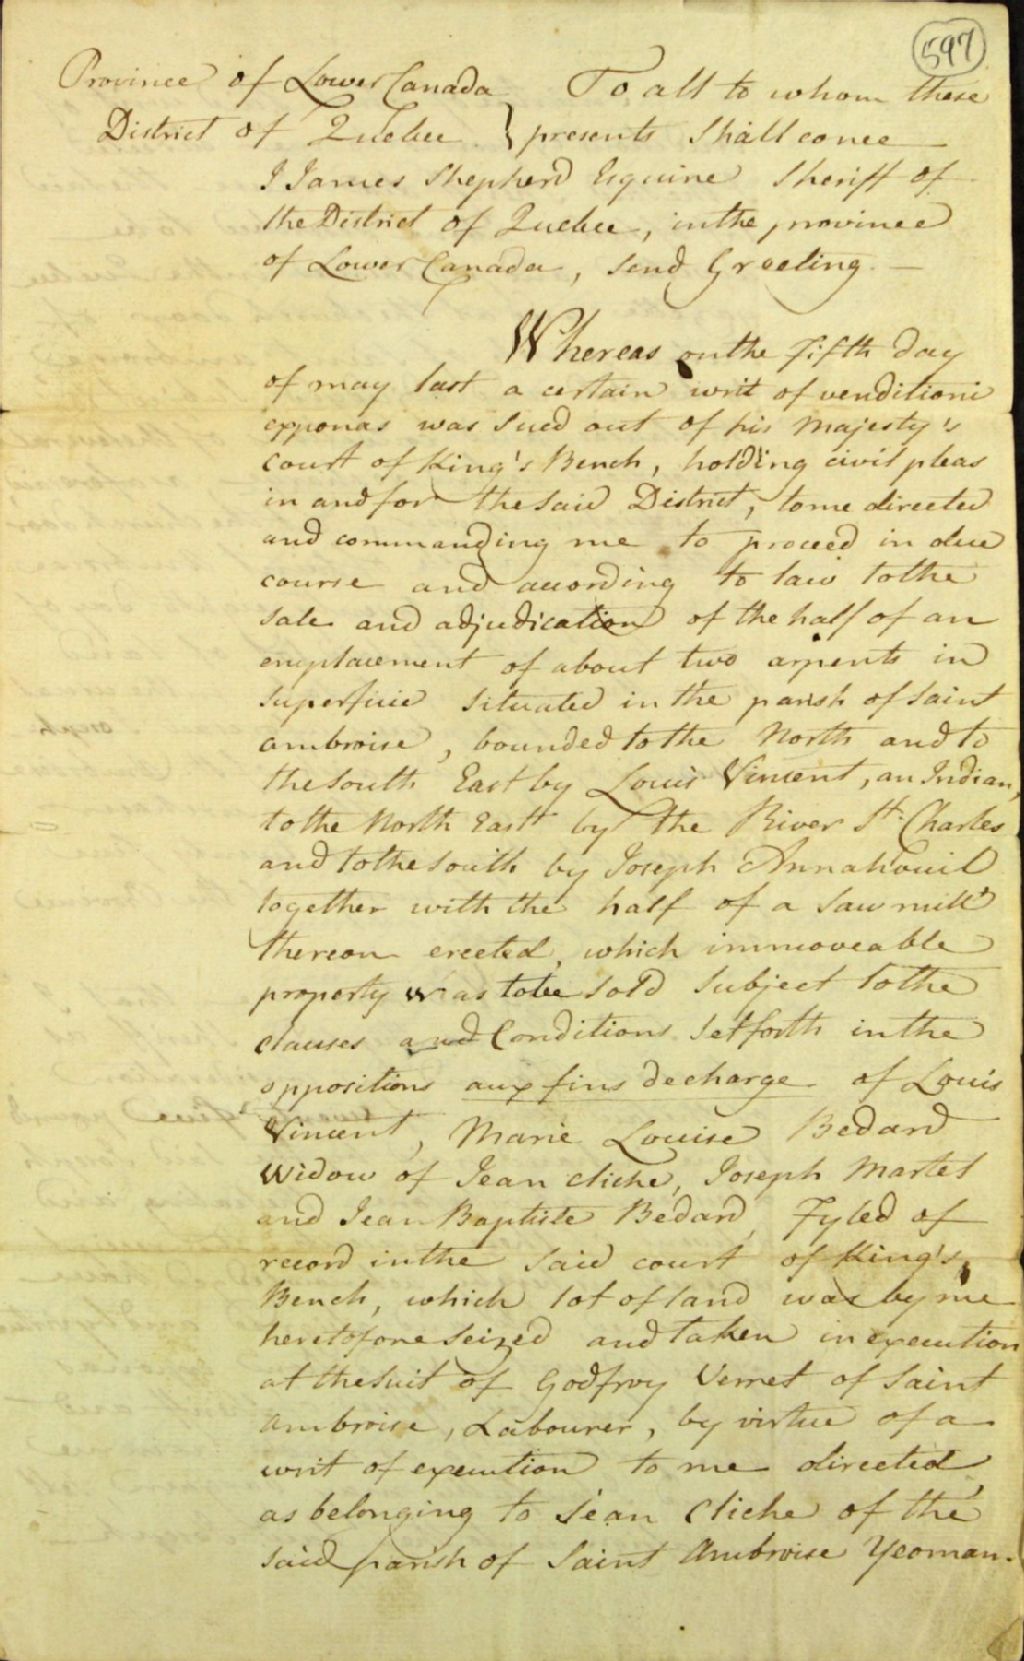 597
Province of Lower Canada } To all to whom these
District of Quebec } presents Shall come
I James Shepherd Esquire Sheriff of
the District of Quebec, in the province
of Lower Canada, Send Greeting. —
Whereas on the Fifth day
of may last a certain writ of venditioni
exponas was Sued out of his Majesty's
Court of King's Bench, holding civil pleas
in and for the Said District, to me directed
and commanding me to proceed in due
course and according to law to the
Sale and adjudication of the half of an
emplacement of about two arpents in
Superficie Situated in the parish of Saint
ambroise, bounded to the North and to
the South East by Louis Vincent, an Indian,
to the North East by the River St. Charles
and to the South by Joseph Annahouil
together with the half of a Saw mill
thereon erected, which immoveable
property was to be Sold Subject to the
clauses and Conditions Set forth in the
oppositions aux fins de charge of Louis
Vincent, Marie Louise Bedard
Widow of Jean Cliche, Joseph Martel
and Jean Baptiste Bedard, Fyled of
record in the Said court of King's
Bench, which lot of land was by me
heretofore Seized and taken in execution
at the Suit of Godfroy Verret of Saint
Ambroise, Labourer, by virtue of a
writ of execution to me directed
as belonging to Jean Cliche of the
Said parish of Saint Ambroise Yeoman.